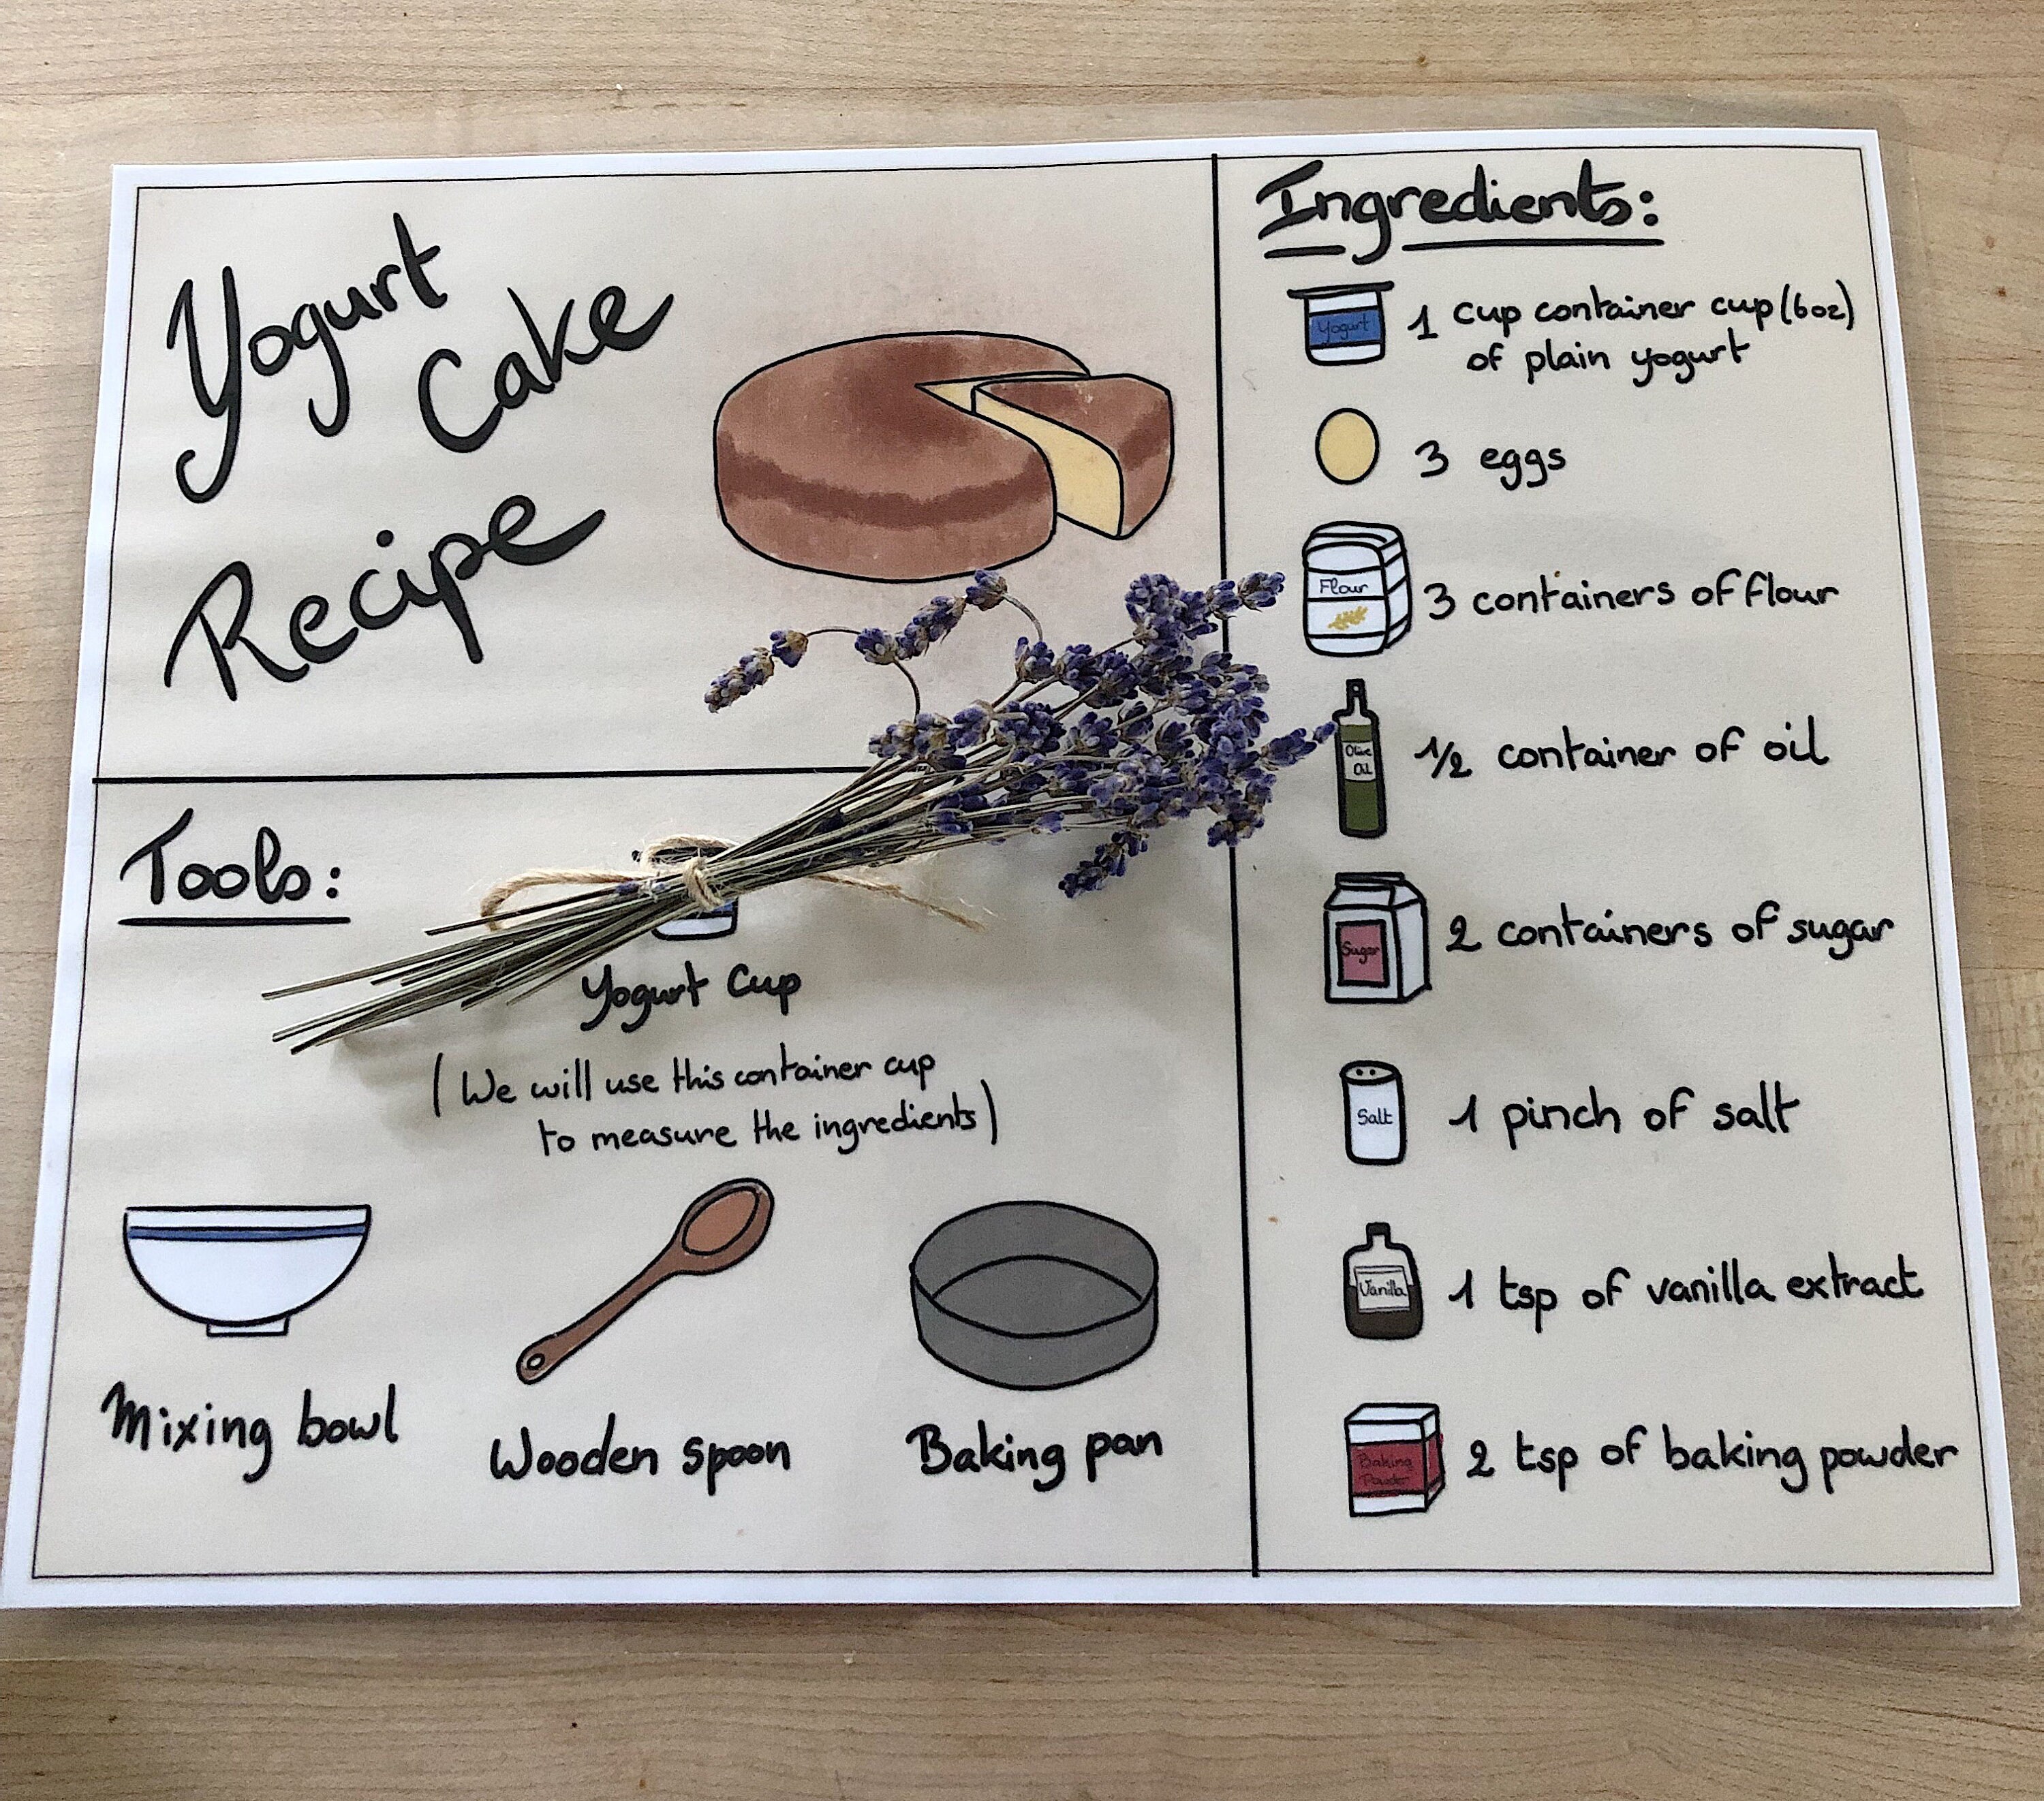 Yogurt
Cake
Recipe
Tools:
Yogurt Cup
(We will use this container cup
to measure the ingredients)
Mixing bowl
Wooden spoon
Baking pan
Ingredients:
Yogurt
1 cup container cup (6oz)
of plain yogurt
3 eggs
Flour
3 containers of flour
Olive
Oil
1/2 container of oil
Sugar
2 containers of sugar
Salt
1 pinch of salt
Vanilla
1 tsp of vanilla extract
Baking
Powder
2 tsp of baking powder